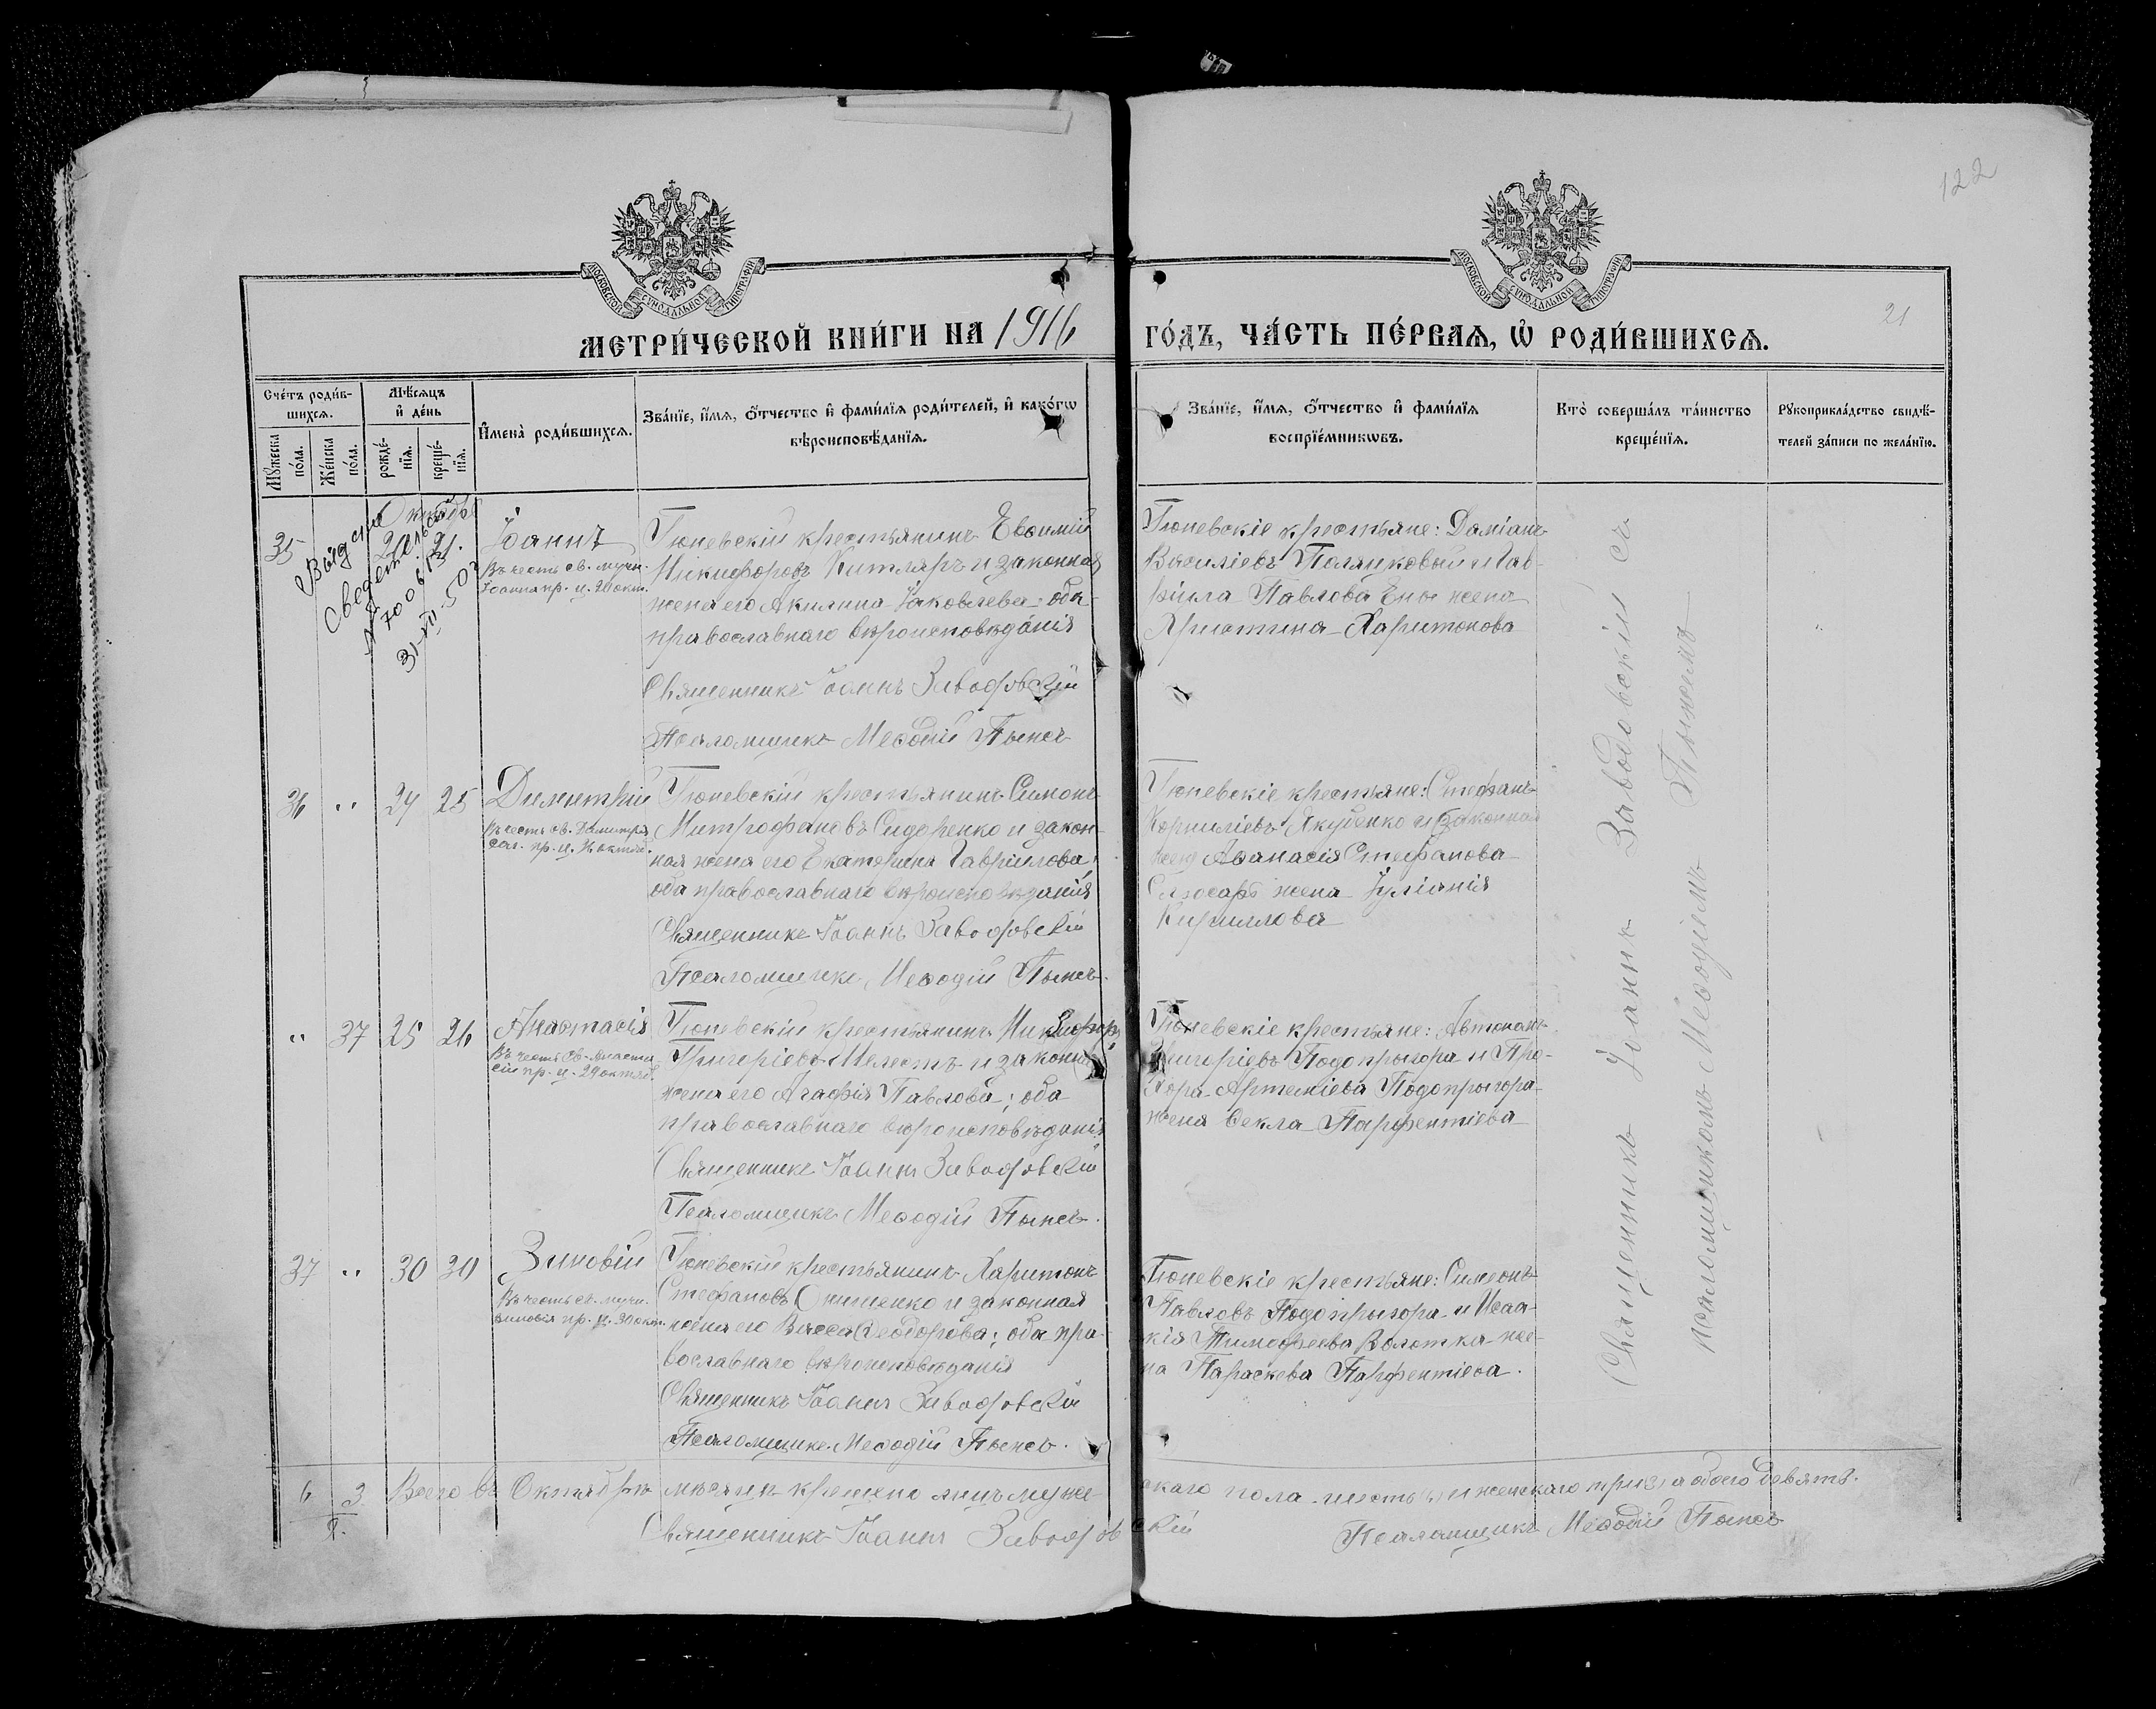 122
МОСКОВСКОЙ СѴНОДАЛЬНОЙ ТИПОГРАФІИ
МОСКОВСКОЙ СѴНОДАЛЬНОЙ ТИПОГРАФІИ
21
МЕТРИ́ЧЕСКОЙ КНИ́ГИ НА 1916
ГО́ДЪ, ЧА́СТЬ ПЕ́РВАѦ, Ѡ҆ РОДИ́ВШИХСѦ.
Сче́тъ роди́в-
шихсѧ.
Мꙋжеска
по́ла.
Же́нска
по́ла.
Мѣ́сѧцъ
и҆ де́нь
рожде́-
нїѧ.
креще́-
нїѧ.
И҆мена̀ роди́вшихсѧ.
Зва́нїе, и҆́мѧ, ѻ҆́тчество и҆ фами́лїѧ роди́телей, и҆ како́гѡ
вѣроисповѣ́данїѧ.
Зва́нїе, и҆́мѧ, ѻ҆́тчество и҆ фами́лїѧ
воспрїе́мникѡвъ.
Кто̀ соверша́лъ та́инство
креще́нїѧ.
Рꙋкоприкла́дство свидѣ́-
телей за́писи по жела́нїю.
Октября
35
21.
Іоаннъ
Въ честь св. мучн.
Іоанна пр. ц. 20 окт.
Тюпевскій крестьянинъ Евѳимій
Никифоровъ Китляръ и законная
жена его Акилина Іаковлева; оба
православнаго вѣроисповѣданія
Священникъ Іоаннъ Заводовскій
Псаломщикъ Меѳодій Пынсъ
Тюпевскіе крестьяне: Даміанъ
Василіевъ Поляцковый и Гав-
ріила Павлова Ены жена
Христина Харитонова
36 " 24 25
Димитрій
Въ честь св. Димитрія
сол. пр. ц. 26 октяб.
Тюпевскій крестьянинъ Симонъ
Митрофановъ Сидоренко и закон-
ная жена его Екатерина Гавріилова;
оба православнаго вѣроисповѣданія
Священникъ Іоаннъ Заводовскій
Псаломщикъ Меѳодій Пынсъ.
Тюпевскіе крестьяне: Стефанъ
Корниліевъ Якубенко и законная
жена Аѳанасія Стефанова
Слюсаръ жена Іуліанія
Кириллова
" 37 25 26
Анастасія
Въ честь св. Анаста
сіи пр. ц. 29 октяб.
Тюпевскій крестьянинъ Никифоръ
Григоріевъ Шелестъ и законная
жена его Агафія Павлова; оба
православнаго вѣроисповѣданія
Священникъ Іоаннъ Заводовскій
Псаломщикъ Меѳодій Пынсъ.
Тюпевскіе крестьяне: Автономъ
Григоріевъ Подопрыгора и Про-
хора Артеміева Подопрыгора
жена Ѳекла Парфентіева
37 " 30 30
Зиновій
Въ честь св. мучн.
Зиновія пр. ц. 30 окт.
Тюпевскій крестьянинъ Харитонъ
Стефановъ Онищенко и законная
жена его Васса Ѳеодорова; оба пра-
вославнаго вѣроисповѣданія
Священникъ Іоаннъ Заводовскій
Псаломщикъ Меѳодій Пынсъ.
Тюпевскіе крестьяне: Симеонъ
Павловъ Подопрыгора и Исаа-
кія Тимофеева Волотка же-
на Параскева Парфентіева.
Священникъ Іоаннъ Заводовскій съ
псаломщикомъ Меѳодіемъ Пынсомъ
6 3 Всего въ Октябрѣ мѣсяцѣ крещено лицъ муже-
скаго пола шесть (6) и женскаго три (3), а обоего девять.
9.
Священникъ Іоаннъ Заводовскій
Псаломщикъ Меѳодій Пынсъ